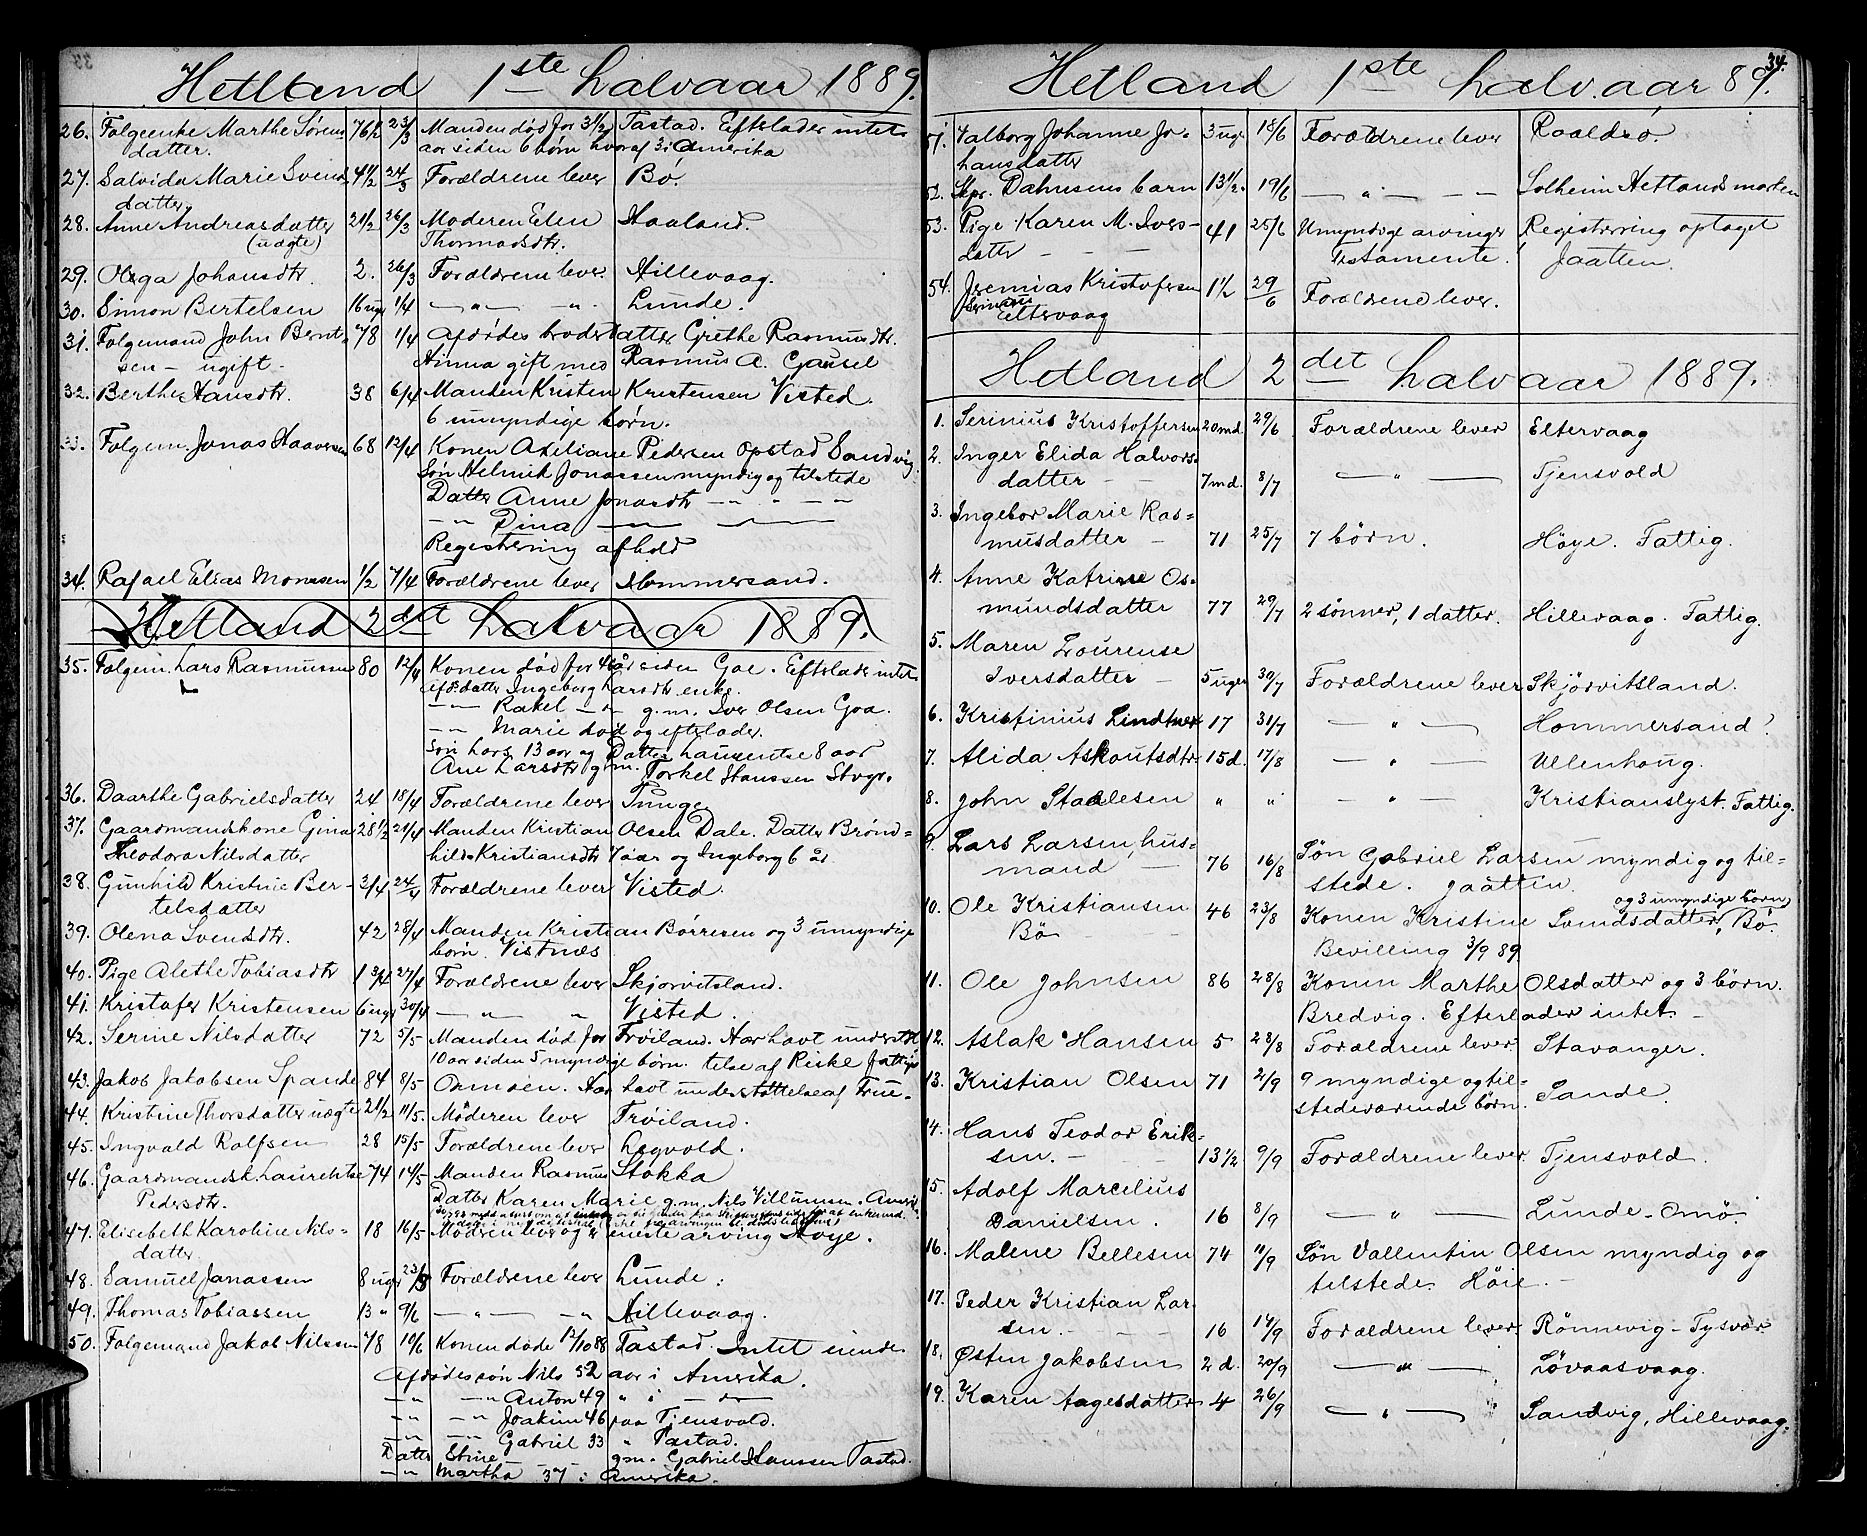 Hetland 1ste halvaar 1889.
26. Folgeenke Marthe Sörens 76½ 23/3 Manden död for 3½ Tastad. Efterlader intet
datter. aar siden 6 börn hvoraf 3 i Amerika
27. Salvida Marie Svends 4½ 24/3 Forældrene lever Bö.
datter
28. Anne Andreasdatter 2½ 26/3 Moderen Elen Haaland.
(uægte) Thomasdtr.
29. Olga Johansdtr 2. 26/3 Forældrene lever Hillevaag.
30. Simon Bertelsen 16 ugr 1/4 — „ — „ Lunde.
31. Folgemand John Bernt 78 1/4 Afdödes broderdatter Grethe Rasmusdtr.
sen – ugift. Hinna gift med Rasmus A. Gausel
32. Berthe Hansdtr. 38 6/4 Manden Kristen Kristensen Visted.
6 umyndige börn.
33. Folgem Jonas Haaversen 68 12/4 Konen Axeliane Pedersen Opstad Sandvig.
Sön Helmik Jonassen myndig og tilstede
Datter Anne Jonasdtr — „ — „ —
— „ Dina — —
Registrering afhold
34. Rafael Elias Monsen ½ 7/4 Forældrene lever Hommersand.
Hetland 2det halvaar 1889.
35. Folgem. Lars Rasmussen 80 12/4 Konen död for 4 år siden Goe. Efterlader intet
datter Ingeborg Larsdtr enke.
— „ Rakel — „ — g.m. Iver Olsen Goa.
— „ Marie död og efterlader.
Sön Lars 13 aar og Datter Laurentse 8 aar
Ane Larsdtr g.m. Torkel Hanssen Stvgr.
36. Daarthe Gabrielsdatter 24 18/4 Forældrene lever Tunge
37. Gaardmandskone Gina 28½ 21/4 Manden Kristian Olsen Dale. Datter Brönd=
Theodora Nilsdatter hilde Kristiansdtr 7 aar og Ingeborg 6 år
38. Gunhild Kristine Ber- 3/4 24/4 Forældrene lever Visted.
telsdatter
39. Olena Svendsdtr. 42 28/4 Manden Kristian Börresen og 3 umyndige
börn. Vistnæs
40. Pige Alethe Tobiasdtr 1 3/4 27/4 Forældrene lever Skjorvitsland.
41. Kristofer Kristensen 6 ugr 30/4 — „ — „ Visted.
42. Serine Nilsdatter 72 5/5 Manden död for Tröiland. Har havt understöt
10 aar siden 5 myndige börn. telse af Riske fattigv
43. Jakob Jakobsen Spande 84 8/5 Har havt understöttelse af
44. Kristine Thorsdatter uægte 2½ 11/5. Moderen lever Tröiland.
45. Ingvald Rolfsen 28 15/5 Forældrene lever Legvold.
46. Gaardmandsk. Laurentse 74 14/5 Manden Rasmus Stokka
Pedersdtr. Datter Karen Marie g.m. Nils Villumsen. Amerik.
47. Elisebeth Karoline Nils= 18 16/5 Modren lever og er eneste arving Höye.
datter.
48. Samuel Janassen 8 ugr 23/5 Forældrene lever Lunde.
49. Thomas Tobiassen 13 „ 9/6 — „ — „ Hillevaag.
50. Folgemand Jakob Nilssen 78 10/6 Konen döde 17/10 88 Tastad. Intet eiende
Afdödes sön Nils 52 aar i Amerika.
— „ — „ Anton 49 „ i — „ —
— „ — „ Joakim 46 paa Tjensvold.
— „ — „ Gabriel 33 „ Tastad.
Datter Stine — g.m. Gabriel Hanssen Tastad.
— „ Martha 37 i Amerika.
34.
Hetland 1ste halv.aar 89.
51. Valborg Johanne Jo- 3 uger 18/6 Forældrene lever Roaldsö.
hansdatter
52. Skpr. Dahnsens barn 13½. 19/6 — „ — — Solheim Hetlandsmarken
53. Pige Karen M. Ivers- 41 25/6 Umyndige arvinger Registrering optaget
datter — — Testamente! Jaatten.
54. Jeremias Kristofersen 1½ 29/6 Forældrene lever.
Serinius
Eltervaag
Hetland 2det halvaar 1889.
1. Serinius Kristoffersen 20 md. 29/6 Forældrene lever Eltervaag
2. Inger Elida Halvors-
datter — — 7 md. 8/7 — „ — Tjensvold
3. Ingebor Marie Ras=
musdatter — 71 25/7 7 börn. Höye. Fattig.
4. Anne Katrine Os-
mundsdatter 77 29/7 2 sönner, 1 datter. Hillevaag. Fattig.
5. Maren Lourense
Iversdatter — 5 uger 30/7 Forældrene lever Skjörvitsland.
6. Kristinius Lindtner 17 31/7 — „ — Hommersand!
7. Alida Askoutsdtr 15 d. 17/8 — „ — Ullenhoug.
8. John Staalesen „ „ — „ — Kristianslyst. Fattig.
9. Lars Larsen, hus=
mand — 76 16/8 Sön Gabriel Larsen myndig og til=
stede. Jaatten.
10. Ole Kristiansen 46 23/8 Konen Kristine Svendsdatter, Bö.
og 3 umyndige börn
Bö Bevilling 3/9 89.
11. Ole Johnsen 86 28/8 Konen Marthe Olsdatter og 3 börn.
Bredvig. Efterlader intet. –
12. Aslak Hansen 5 28/8 Forældrene lever. Stavanger.
13. Kristian Olsen 71 2/9 9 myndige og til=
stedeværende börn. Sande.
14. Hans Teodor Erik=
sen. — 13½ 9/9 Forældrene lever. Tjensvold.
15. Adolf Marcelius
Danielsen. 16 8/9 — „ — Lunde – Omö.
16. Malene Bellesen 74 11/9 Sön Vallentin Olsen myndig og
tilstede. Höie. –
17. Peder Kristian Lar-
sen. — — 16 14/9 Forældrene lever. Rönnevig – Tysvær
18. Østen Jakobsen 2 d. 20/9 — „ — Lövaasvaag.
19. Karen Aagesdatter 4 26/9 — „ — Sandvig, Hillevaag.